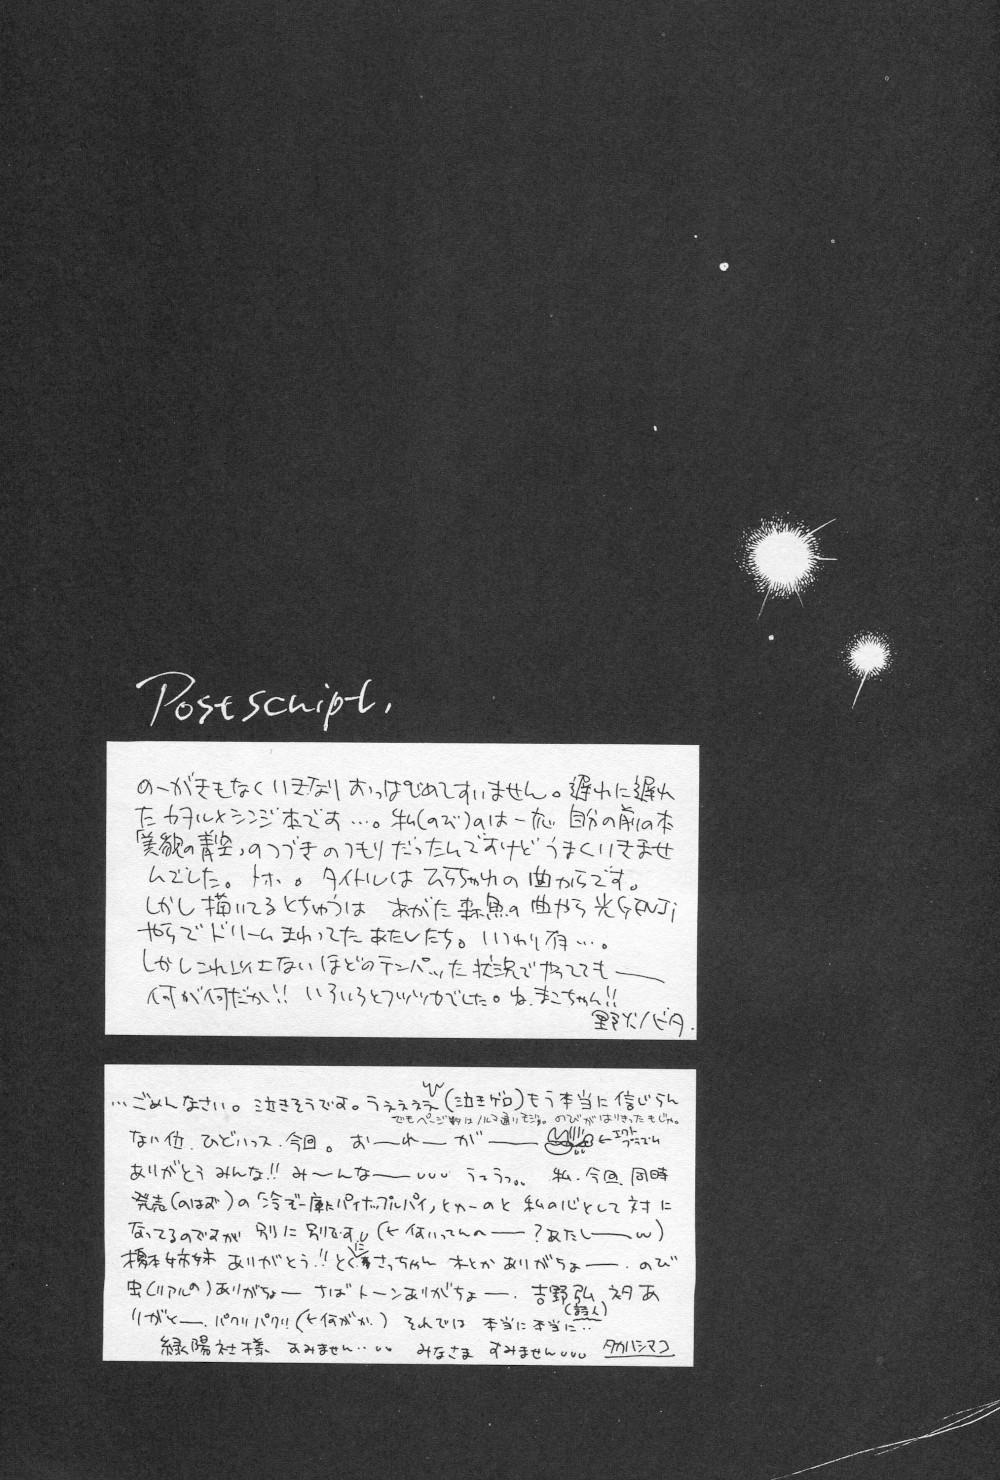 Postscript.
のーがきもなくいきなりおっぱじめてすいません。遅れに遅れ
たカヲル×シンジ本です…。私(のび)のは一応 自分の前の本
「美貌の青空」のつづきのつもりだったんですけどうまくいきませ
んでした。トホ。。タイトルは の曲からです。
しかし描いてるとちゅうは あがた森魚の曲やら光GENJI
やらでドリームまわってたあたしたち。いつわり有…。
しかしこれ以上ないほどのテンパッた状況でやってても——
何が何だか!! いろいろとフツツカでした。ね、まこちゃん!!
野火ノビタ.
…ごめんなさい。泣きそうです。うえぇぇぇ(泣きゲロ)もう本当に信じらん
でもページ数はノルマ通りモジャ。のびがはりきったもじゃ。
ない位、ひどいっス、今回。おーれーがー ←エクトプラズム
ありがとうみんな!! み〜んなー うっうっ。。 私、今回、同時
発売(のはず)の「冷ぞー庫にパイナップルパイ」とかーのと 私の心として対に
なってるのですが 別に別です。(←何いってんのー?あたしー)
橋本姉妹 ありがとう!! とくに さっちゃん 本とか ありがちょー。のび
虫(リアルの)ありがちょー さばトーンありがちょー. 吉野弘(詩人) ネタあ
りがとー. パクリパクリ(←何がか.) それでは 本当に本当に…
緑陽社様 すみません… みなさま すみません タカハシマコ